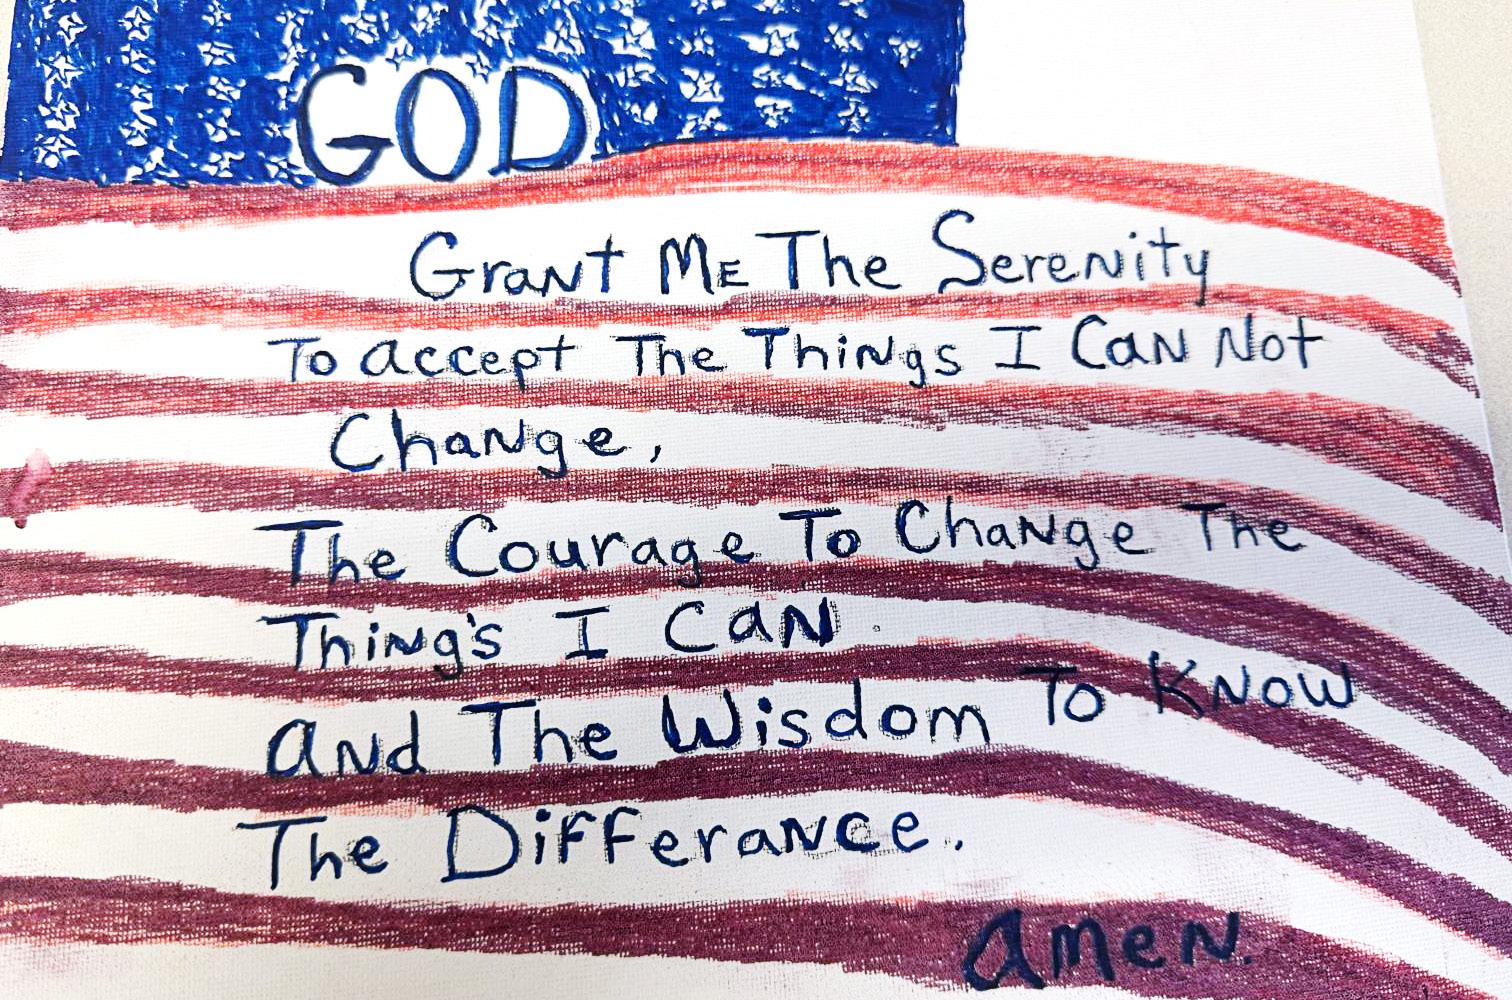 GOD
Grant ME The Serenity
To accept The Things I CaN Not
ChaNge,
The Courage To ChaNge The
ThiNg's I CaN.
aNd The Wisdom To KNow
The DiFFeraNce.
ameN.